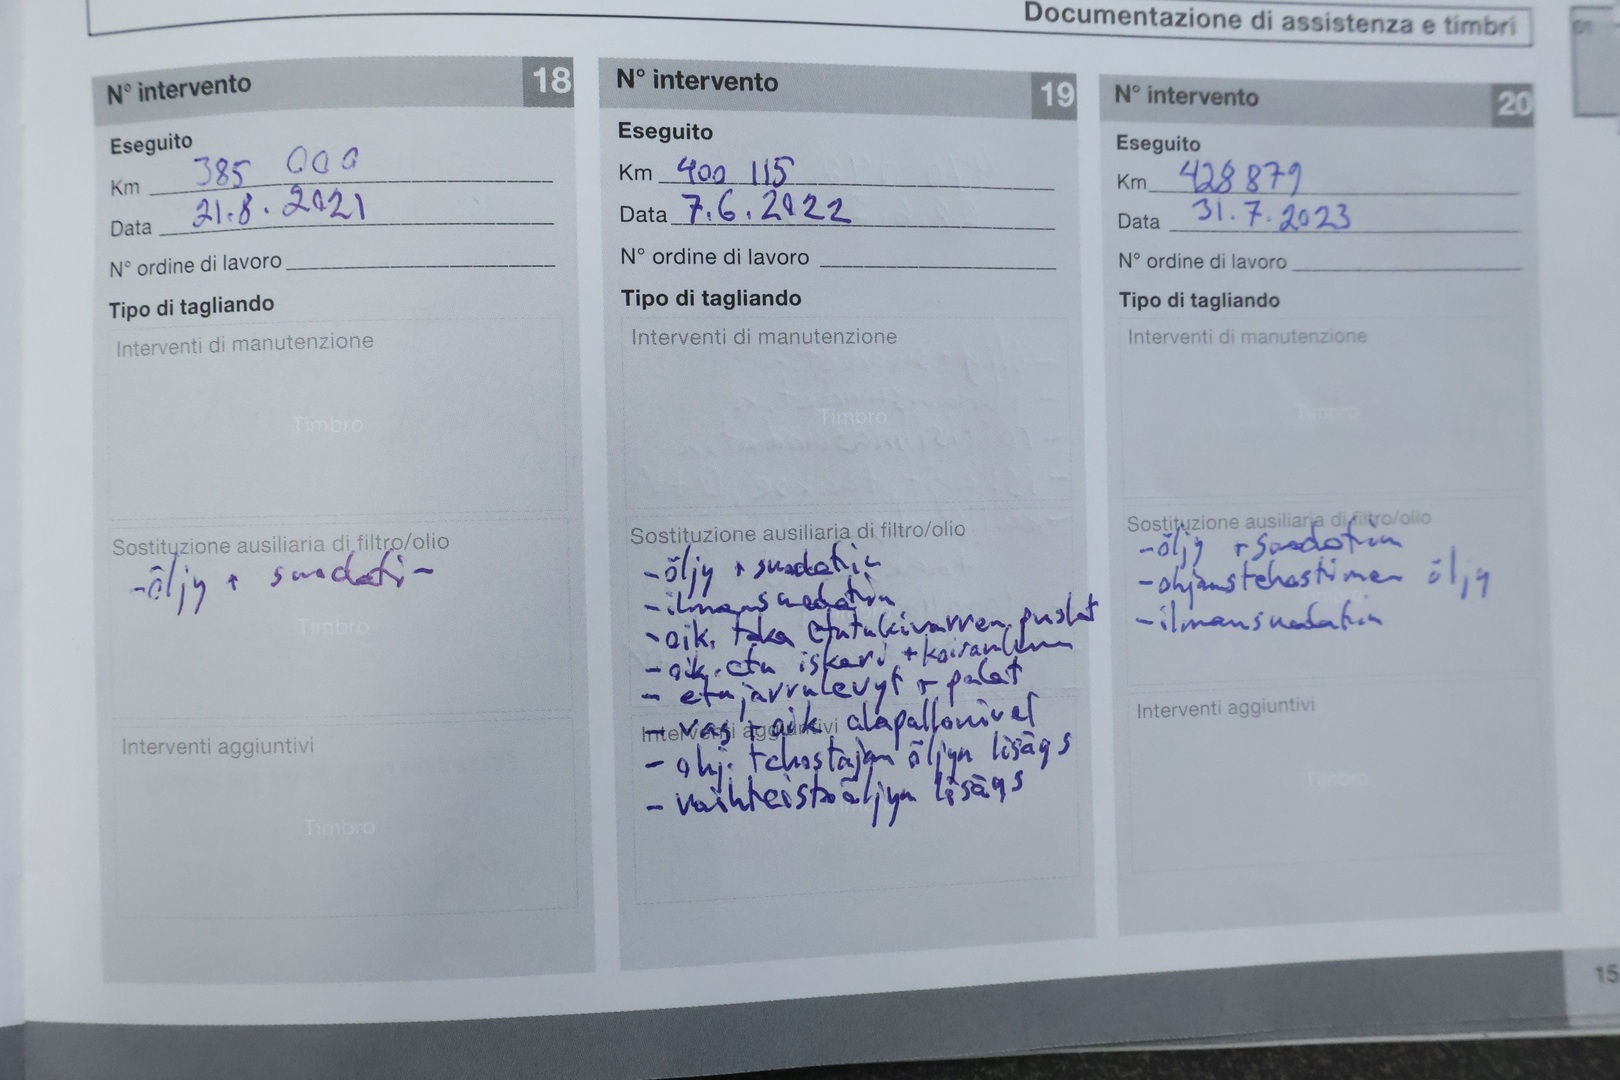 Documentazione di assistenza e timbri
N° intervento 18
Eseguito
Km 385 000
Data 21.8.2021
N° ordine di lavoro
Tipo di tagliando
Interventi di manutenzione
Timbro
Sostituzione ausiliaria di filtro/olio
-öljy + suodatin
Timbro
Interventi aggiuntivi
Timbro
N° intervento 19
Eseguito
Km 400 115
Data 7.6.2022
N° ordine di lavoro
Tipo di tagliando
Interventi di manutenzione
Timbro
Sostituzione ausiliaria di filtro/olio
-öljy + suodatin
-ilmansuodatin
-oik. taka etutukivarren puslat
-oik. etu iskari +
- etujarrulevyt + palat
Interventi aggiuntivi
- vas + oik alapallonivel
- ohj. tehostajan öljyn lisäys
- vaihteistoöljyn lisäys
N° intervento 20
Eseguito
Km 428 879
Data 31.7.2023
N° ordine di lavoro
Tipo di tagliando
Interventi di manutenzione
Timbro
Sostituzione ausiliaria di filtro/olio
-öljy + suodatin
-ohjaustehostimen öljy
-ilmansuodatin
Interventi aggiuntivi
Timbro
15